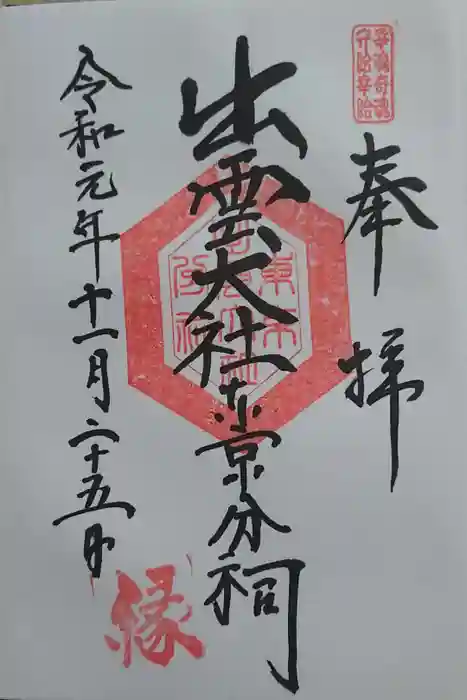 奉拝
出雲大社東京分祠
令和元年十一月二十五日
縁